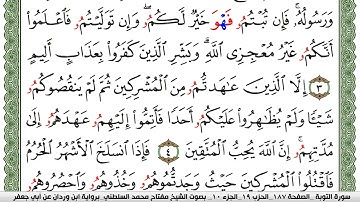 وَرَسُولُهُۥۚ فَإِن تُبْتُمُۥ فَهْوَ خَيْرٌ لَّكُمُۥۖ وَإِن تَوَلَّيْتُمُۥ فَٱعْلَمُوٓا۟
أَنَّكُمُۥ غَيْرُ مُعْجِزِى ٱللَّهِۗ وَبَشِّرِ ٱلَّذِينَ كَفَرُوا۟ بِعَذَابٍ أَلِيمٍ
٣ إِلَّا ٱلَّذِينَ عَٰهَدتُّمُۥ مِنَ ٱلْمُشْرِكِينَ ثُمَّ لَمْ يَنقُصُوكُمُۥ
شَيْـًٔا وَلَمْ يُظَٰهِرُوا۟ عَلَيْكُمُۥٓ أَحَدًا فَأَتِمُّوٓا۟ إِلَيْهِمُۥ عَهْدَهُمُۥٓ إِلَىٰ
مُدَّتِهِمُۥٓۚ إِنَّ ٱللَّهَ يُحِبُّ ٱلْمُتَّقِينَ ٤ فَإِذَا ٱنسَلَخَ ٱلْأَشْهُرُ ٱلْحُرُمُ
فَٱقْتُلُوا۟ ٱلْمُشْرِكِينَ حَيْثُ وَجَدتُّمُوهُمُۥ وَخُذُوهُمُۥ وَٱحْصُرُوهُمُۥ
سورة التوبة . الصفحة ١٨٧ الحزب ١٩ . الجزء ١٠ . بصوت الشيخ مفتاح محمد السلطني. برواية ابن وردان عن أبي جعفر